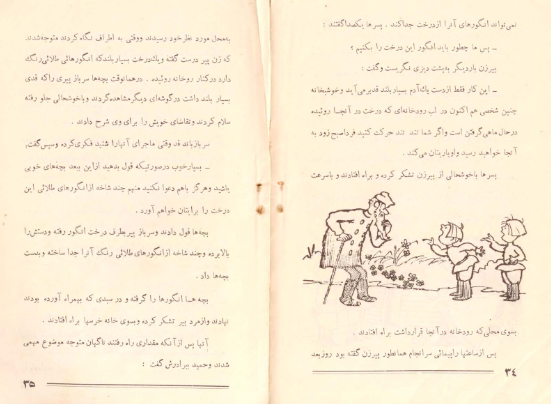 نمی‌تواند انگورهای آنرا ازدرخت جداکند . پسرها یکصداگفتند :
ـ پس ما چطور باید انگور این درخت را بکنیم ؟
پیرزن باردیگر به‌پشت دیزی نگریست وگفت :
ـ این کار فقط ازدست یك‌آدم بسیار بلند قدبرمی‌آید وخوشبختانه
چنین شخصی هم اکنون در لب رودخانه‌ای که درخت در آنجا روئیده
درحال ماهی‌گرفتن است واگر شما تند تند حرکت کنید فرداصبح‌زود به
آنجا خواهید رسید واویاریتان می‌کند .
پسرها باخوشحالی از پیرزن تشکر کرده و براه افتادند و باسرعت
بسوی محلی‌که رودخانه درآنجا قرارداشت براه افتادند .
پس ازساعتها راپیمائی سرانجام همانطور پیرزن گفته بود روزبعد
۳۴
به‌محل مورد نظرخود رسیدند ووقتی به اطراف نگاه کردند متوجه‌شدند
که زن پیر درست گفته ویك‌درخت بسیاربلندکه انگورهائی طلائی‌رنگ
دارد درکنار رودخانه روئیده . درهمانوقت بچه‌ها سرباز پیری راکه قدی
بسیار بلند داشت درگوشه‌ای دیگرمشاهده‌کردند وباخوشحالی جلو رفته
سلام کردند وتقاضای خویش را برای وی شرح دادند .
سرباز بلند قد وقتی ماجرای آنهارا شنید فکری‌کرده وسپس‌گفت:
ـ بسیارخوب درصورتیکه قول بدهید ازاین ببعد بچه‌های خوبی
باشید وهرگز باهم دعوا نکنید منهم چند شاخه ازانگورهای طلائی این
درخت را برایتان خواهم آورد .
بچه‌ها قول دادند وسرباز پیربطرف درخت انگور رفته ودستش‌را
بالابرده وچند شاخه ازانگورهای طلائی رنگ آنرا جدا ساخته وبدست
بچه‌ها داد .
بچه ها انگورها را گرفته و درسبدی که بهمراه آورده بودند
نهادند وازمرد پیر تشکر کرده وبسوی خانه خرسها براه افتادند .
آنها پس ازآنکه مقداری راه رفتند ناگهان متوجه موضوع مهمی
شدند وحمید ببرادرش گفت :
۳۵